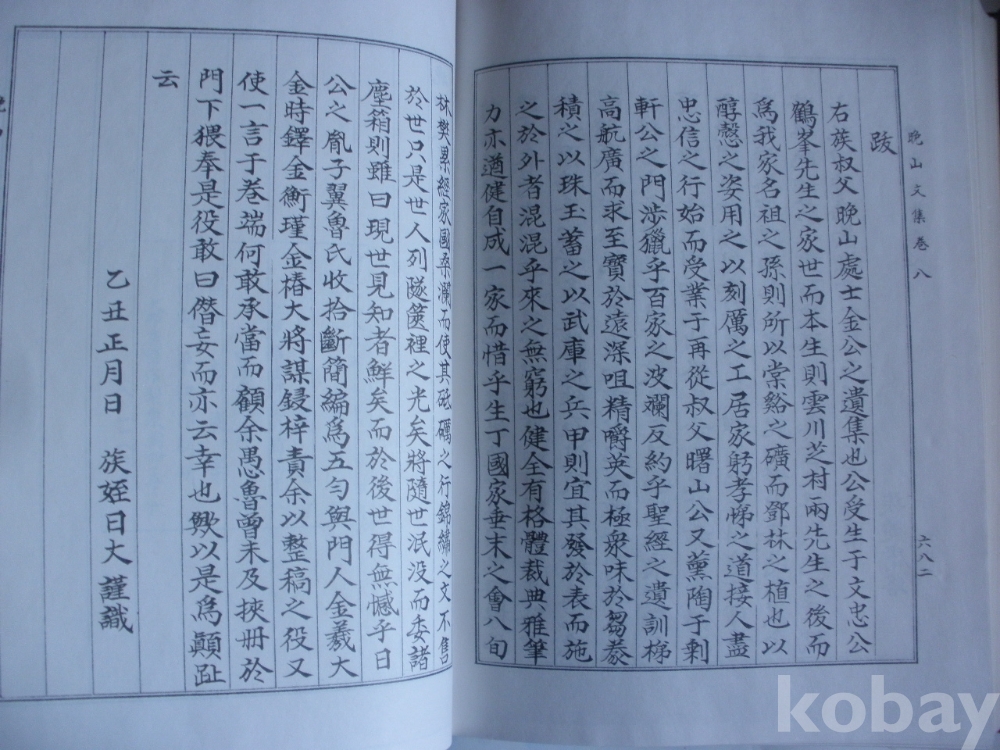 晩山文集卷八
六八二
跋
右族叔父晩山處士金公之遺集也公受生于文忠公
鶴峯先生之家世而本生則雲川芝村兩先生之後而
爲我家名祖之孫則所以棠谿之礦而鄧林之植也以
醇慤之姿用之以刻厲之工居家躬孝悌之道接人盡
忠信之行始而受業于再從叔父曙山公又薰陶于剩
軒公之門涉獵乎百家之波瀾反約乎聖經之遺訓梯
高航廣而求至寶於遠深咀精嚼英而極衆味於芻豢
積之以珠玉蓄之以武庫之兵甲則宜其發於表而施
之於外者混混乎來之無窮也健全有格體裁典雅筆
力亦遒健自成一家而惜乎生丁國家垂末之會八旬
林樊累經家國桑瀾而使其砥礪之行錦繡之文不售
於世只是世人列隧篋裡之光矣將隨世泯没而委諸
塵箱則雖曰現世見知者鮮矣而於後世得無憾乎日
公之胤子翼魯氏收拾斷簡編爲五匀與門人金羲大
金時鐸金衡瑾金椿大將謀鋟梓責余以整稿之役又
使一言于卷端何敢承當而顧余愚魯曾未及挾册於
門下猥奉是役敢曰僭妄而亦云幸也歟以是爲顚趾
云
乙丑正月日 族姪日大謹識
kobay